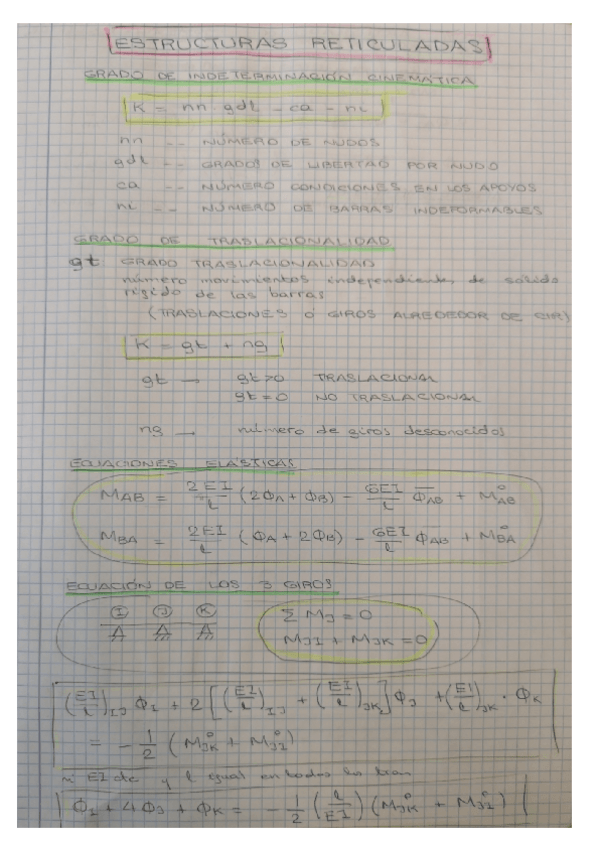 ESTRUCTURAS RETICULADAS
GRADO DE INDETERMINACIÓN CINEMÁTICA
K = nn · gdl - ca - ni
nn -- NÚMERO DE NUDOS
gdl -- GRADOS DE LIBERTAD POR NUDO
ca -- NÚMERO CONDICIONES EN LOS APOYOS
ni -- NÚMERO DE BARRAS INDEFORMABLES
GRADO DE TRASLACIONALIDAD
gt GRADO TRASLACIONALIDAD
número movimientos independientes de sólido
rígido de las barras
(TRASLACIONES O GIROS ALREDEDOR DE CIR)
K = gt + ng
gt → gt>0 TRASLACIONAL
gt = 0 NO TRASLACIONAL
ng → número de giros desconocidos
ECUACIONES ELÁSTICAS
M_AB = 2EI/L (2Φ_A + Φ_B) - 6EI/L Φ̅_AB + M°_AB
M_BA = 2EI/L (Φ_A + 2Φ_B) - 6EI/L Φ_AB + M°_BA
ECUACIÓN DE LOS 3 GIROS
I J K
Σ M_J = 0
M_JI + M_JK = 0
(EI/L)_IJ Φ_I + 2[(EI/L)_IJ + (EI/L)_JK]Φ_J + (EI/L)_JK · Φ_K
= - 1/2 (M°_JK + M°_JI)
si EI cte y L igual en todos los
Φ_I + 4Φ_J + Φ_K = - 1/2 (L/EI) (M°_JK + M°_JI)